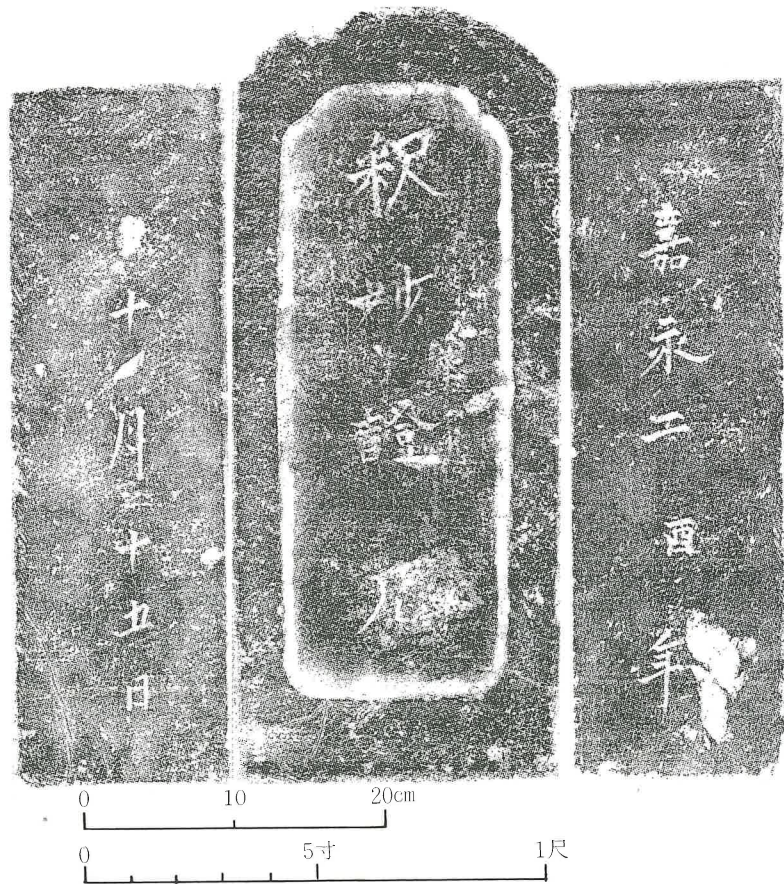 嘉永二酉年
釈妙證
十一月二十五日
0 10 20cm
0 5寸 1尺